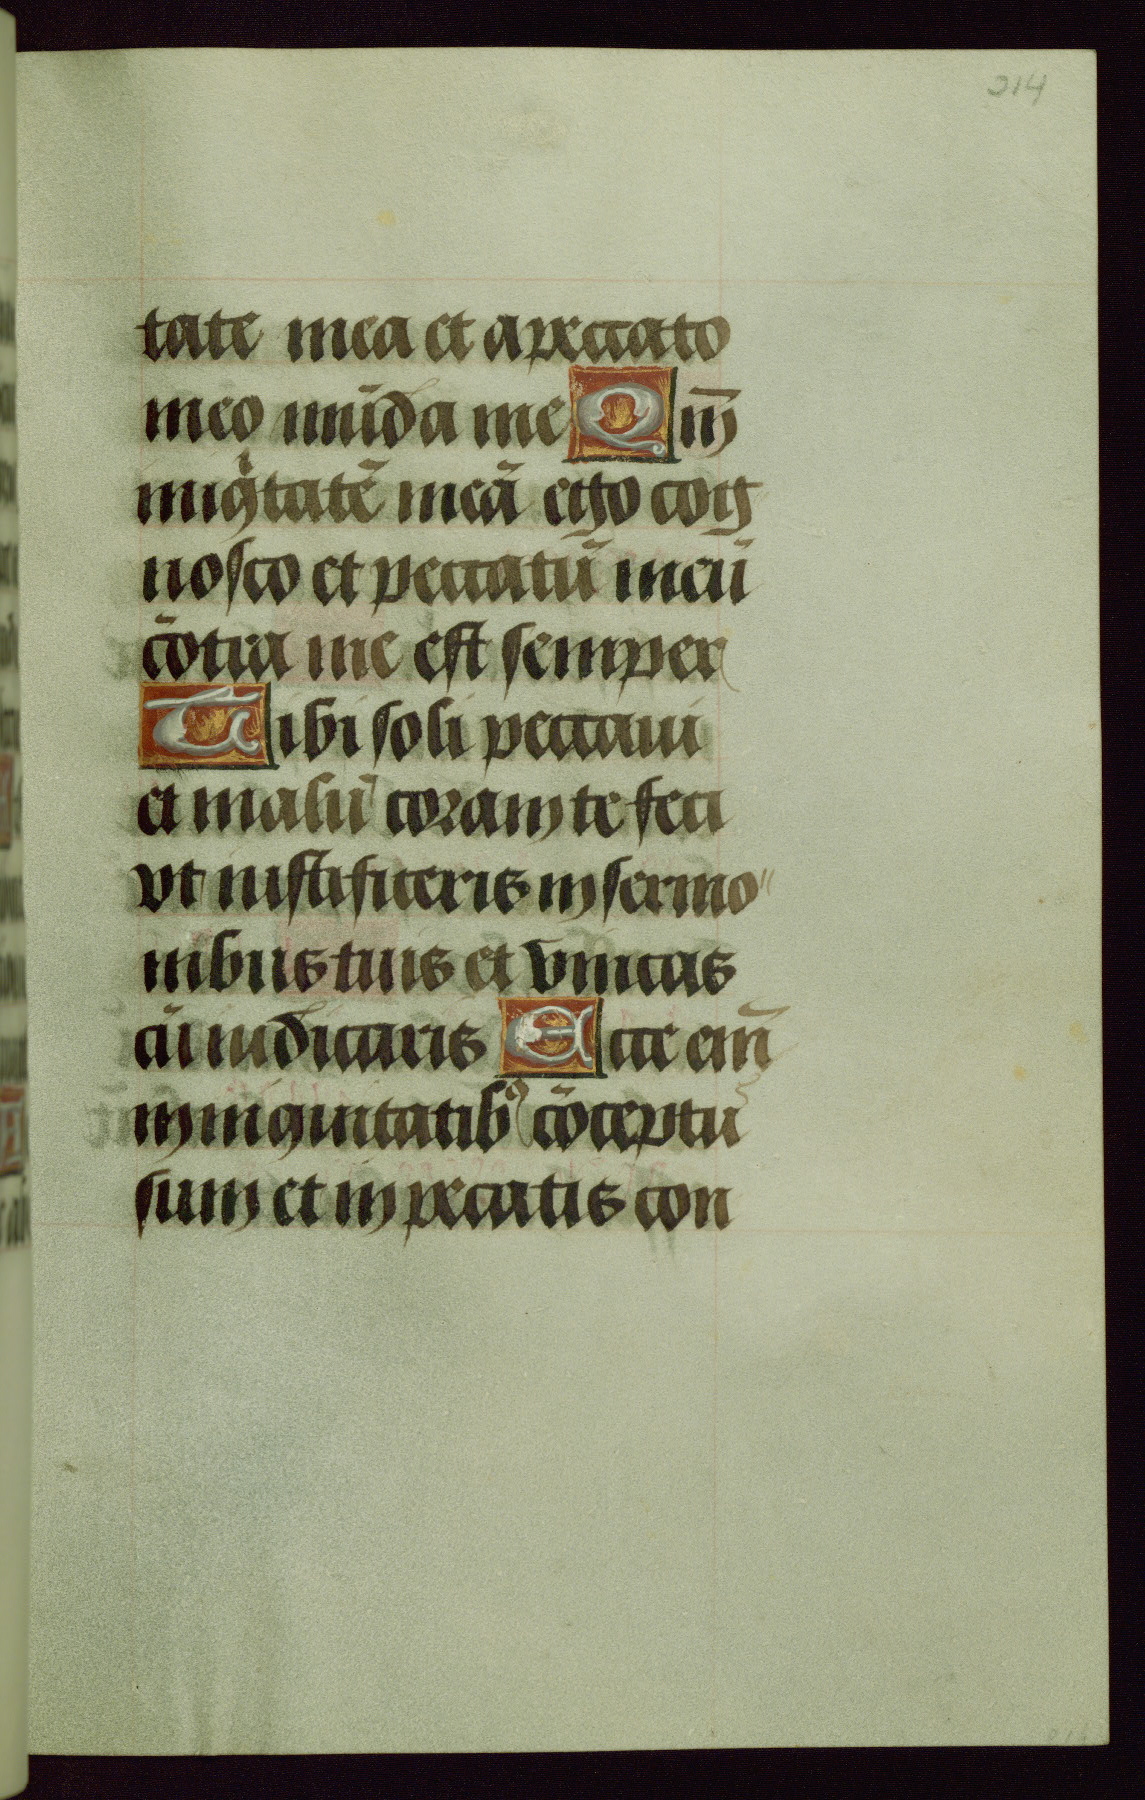 214
tate mea et a peccato
meo mūda me Qm̄
iniqͥtatē meā ego cog
nosco et peccatū meū
cōtra me est semper
Tibi soli peccaui
et malū coram te feci
vt iustificeris in sermo
nibus tuis et vincas
cū iudicaris Ecce em̄
in iniquitatibꝰ cōceptū
sum et in peccatis con